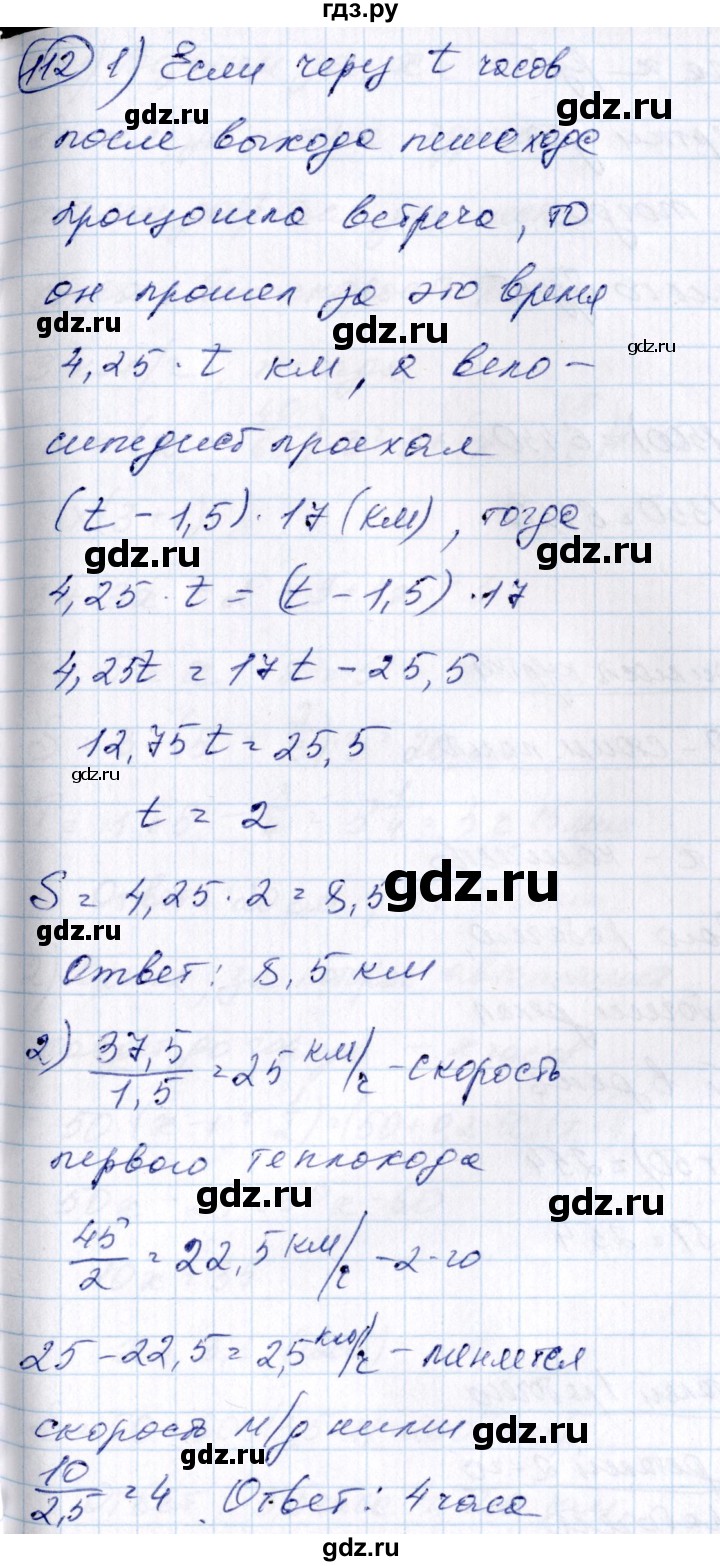 гдз.ру
112 1) Если через t часов
gdz.ru
после выхода пешехода
произошла встреча, то
он прошел за это время
gdz.ru
gdz.ru
gdz.ru
4,25 · t км, а вело-
сипедист проехал
(t - 1,5) · 17 (км), тогда
gdz.ru
gdz.ru
4,25 · t = (t - 1,5) · 17
4,25t = 17t - 25,5
12,75t = 25,5
gdz.ru
t = 2
gdz.ru
S = 4,25 · 2 = 8,5
gdz.ru
Ответ: 8,5 км
2) 37,5/1,5 = 25 км/ч - скорость
первого теплохода
gdz.ru
gdz.ru
45/2 = 22,5 км/ч - 2-го
25 - 22,5 = 2,5 км/ч - меняется
скорость м/д ними
gdz.ru
10/2,5 = 4. Ответ: 4 часа
gdz.ru
gdz.ru